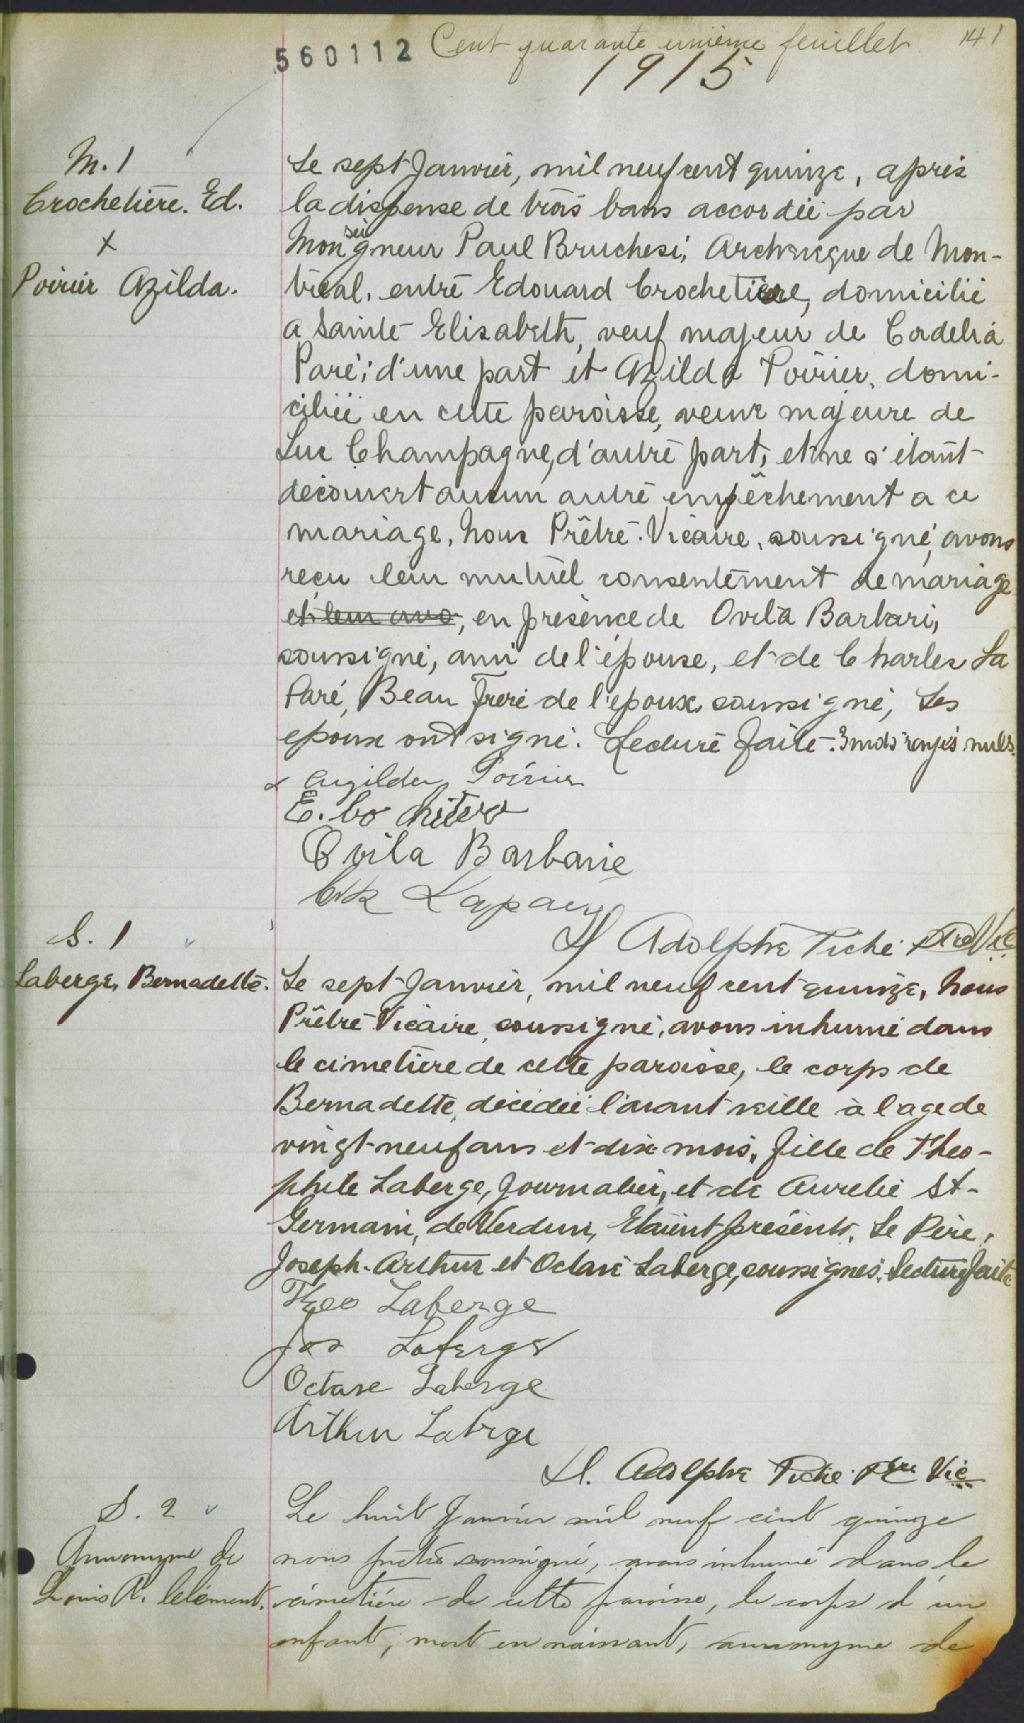 560112 Cent quarante unième feuillet 141
1915
M. 1
Crochetière. Ed.
x
Poirier Azilda.
Le sept Janvier, mil neuf cent quinze, après
la dispense de trois bans accordée par
Monseigneur Paul Bruchesi, Archevêque de Mon-
tréal, entre Edouard Crochetiere, domicilié
a Sainte Elisabeth, veuf majeur de Cordelia
Paré; d'une part et Azilda Poirier, domi-
ciliée en cette paroisse, veuve majeure de
Luc Champagne, d'autre part, et ne s'étant
découvert aucun autre empêchement a ce
mariage, Nous Prêtre-Vicaire, soussigné, avons
reçu leur mutuel consentement de mariage
et leur avo, en présence de Ovila Barbari,
soussigné, ami de l'épouse, et de Charles La
Paré, Beau Frere de l'epoux soussigné, Les
epoux ont signé. Lecture faite. 3 mots rayés nuls.
x Azilda Poirier
E.
Ovila Barbarie
Adolphe Tiché Ptre Vic
S. 1
Laberge, Bernadette.
Le sept Janvier, mil neuf cent quinze, Nous
Prêtre Vicaire, soussigné, avons inhumé dans
le cimetière de cette paroisse, le corps de
Bernadette, décédée l'avant veille à l'age de
vingt-neuf ans et dix mois, fille de Theo-
phile Laberge, Journalier, et de Aurelie St-
Germain, de Verdun, Etaient présents, Le Père,
Joseph. Arthur et Octave Laberge, soussignés. Lecture faite
Theo Laberge
Jos Laberge
Octave Laberge
Arthur Laberge
Adolphe Tiché Ptre Vic
S. 2
Annonyme de
Louis R. Clément.
Le huit Janvier mil neuf cent quinze
nous prêtre soussigné, avons inhumé dans le
cimetière de cette paroisse, le corps d'un
enfant, mort en naissant, annonyme de